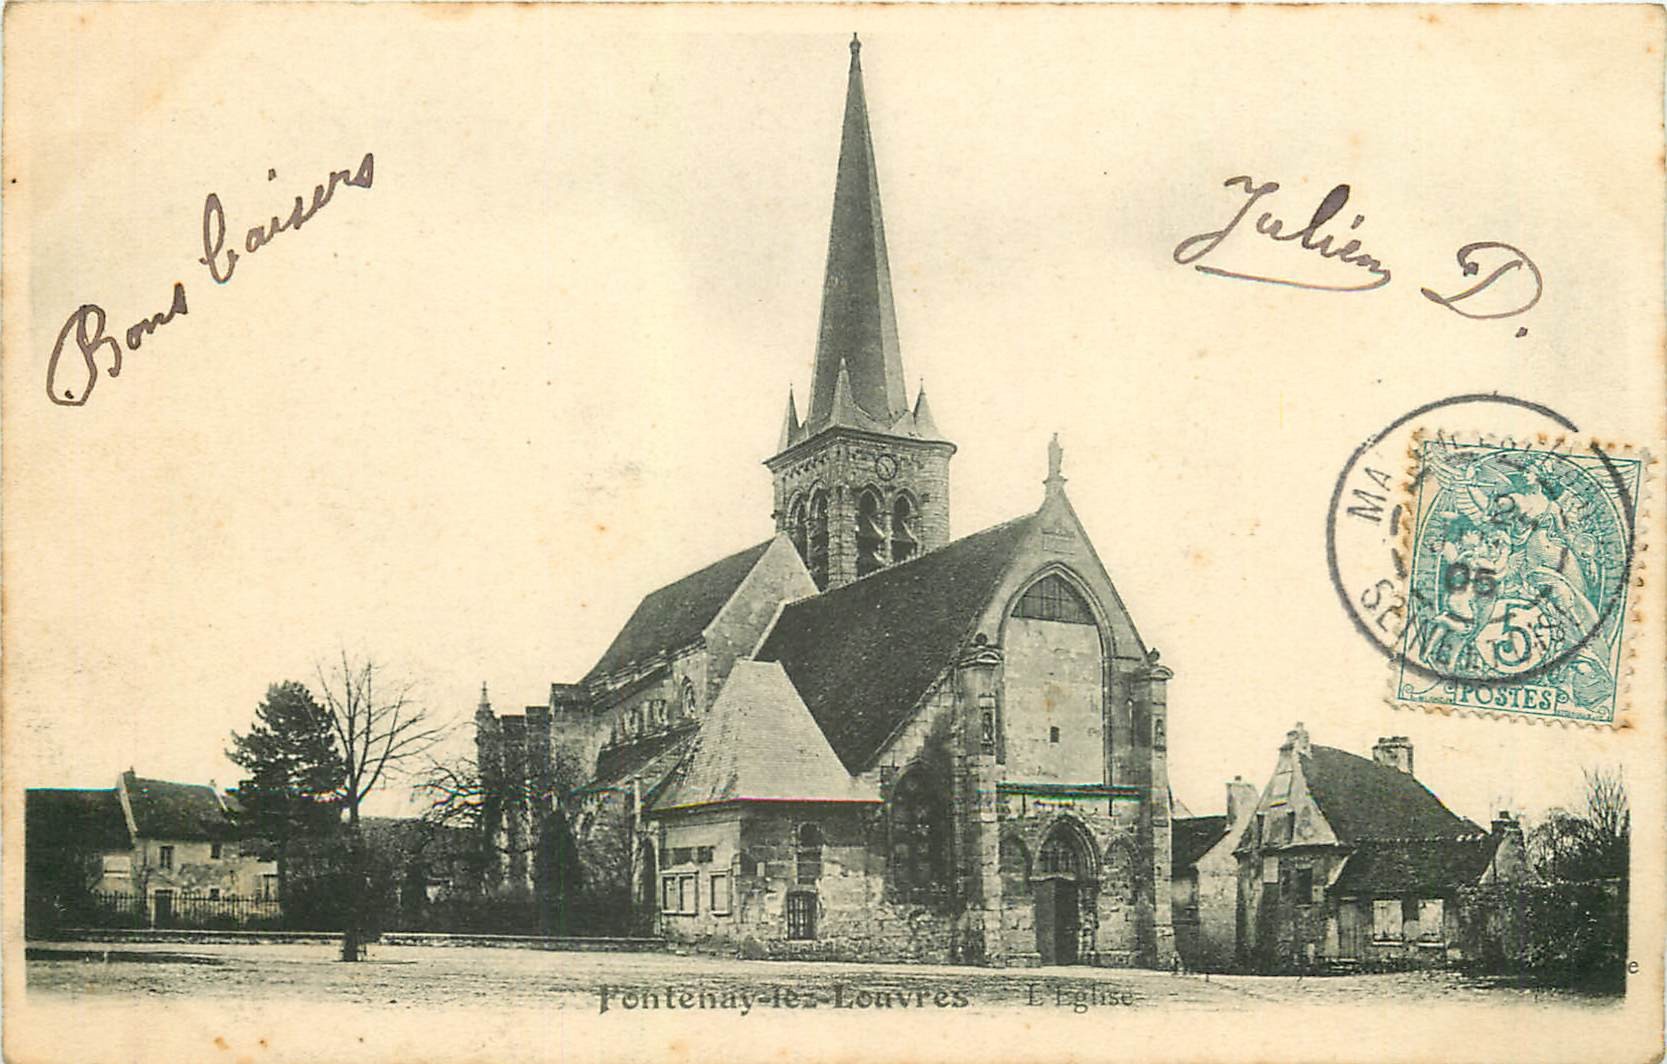 Bons baisers
Julien D.
05
5
POSTES
Fontenay-lez-Louvres — L'Eglise